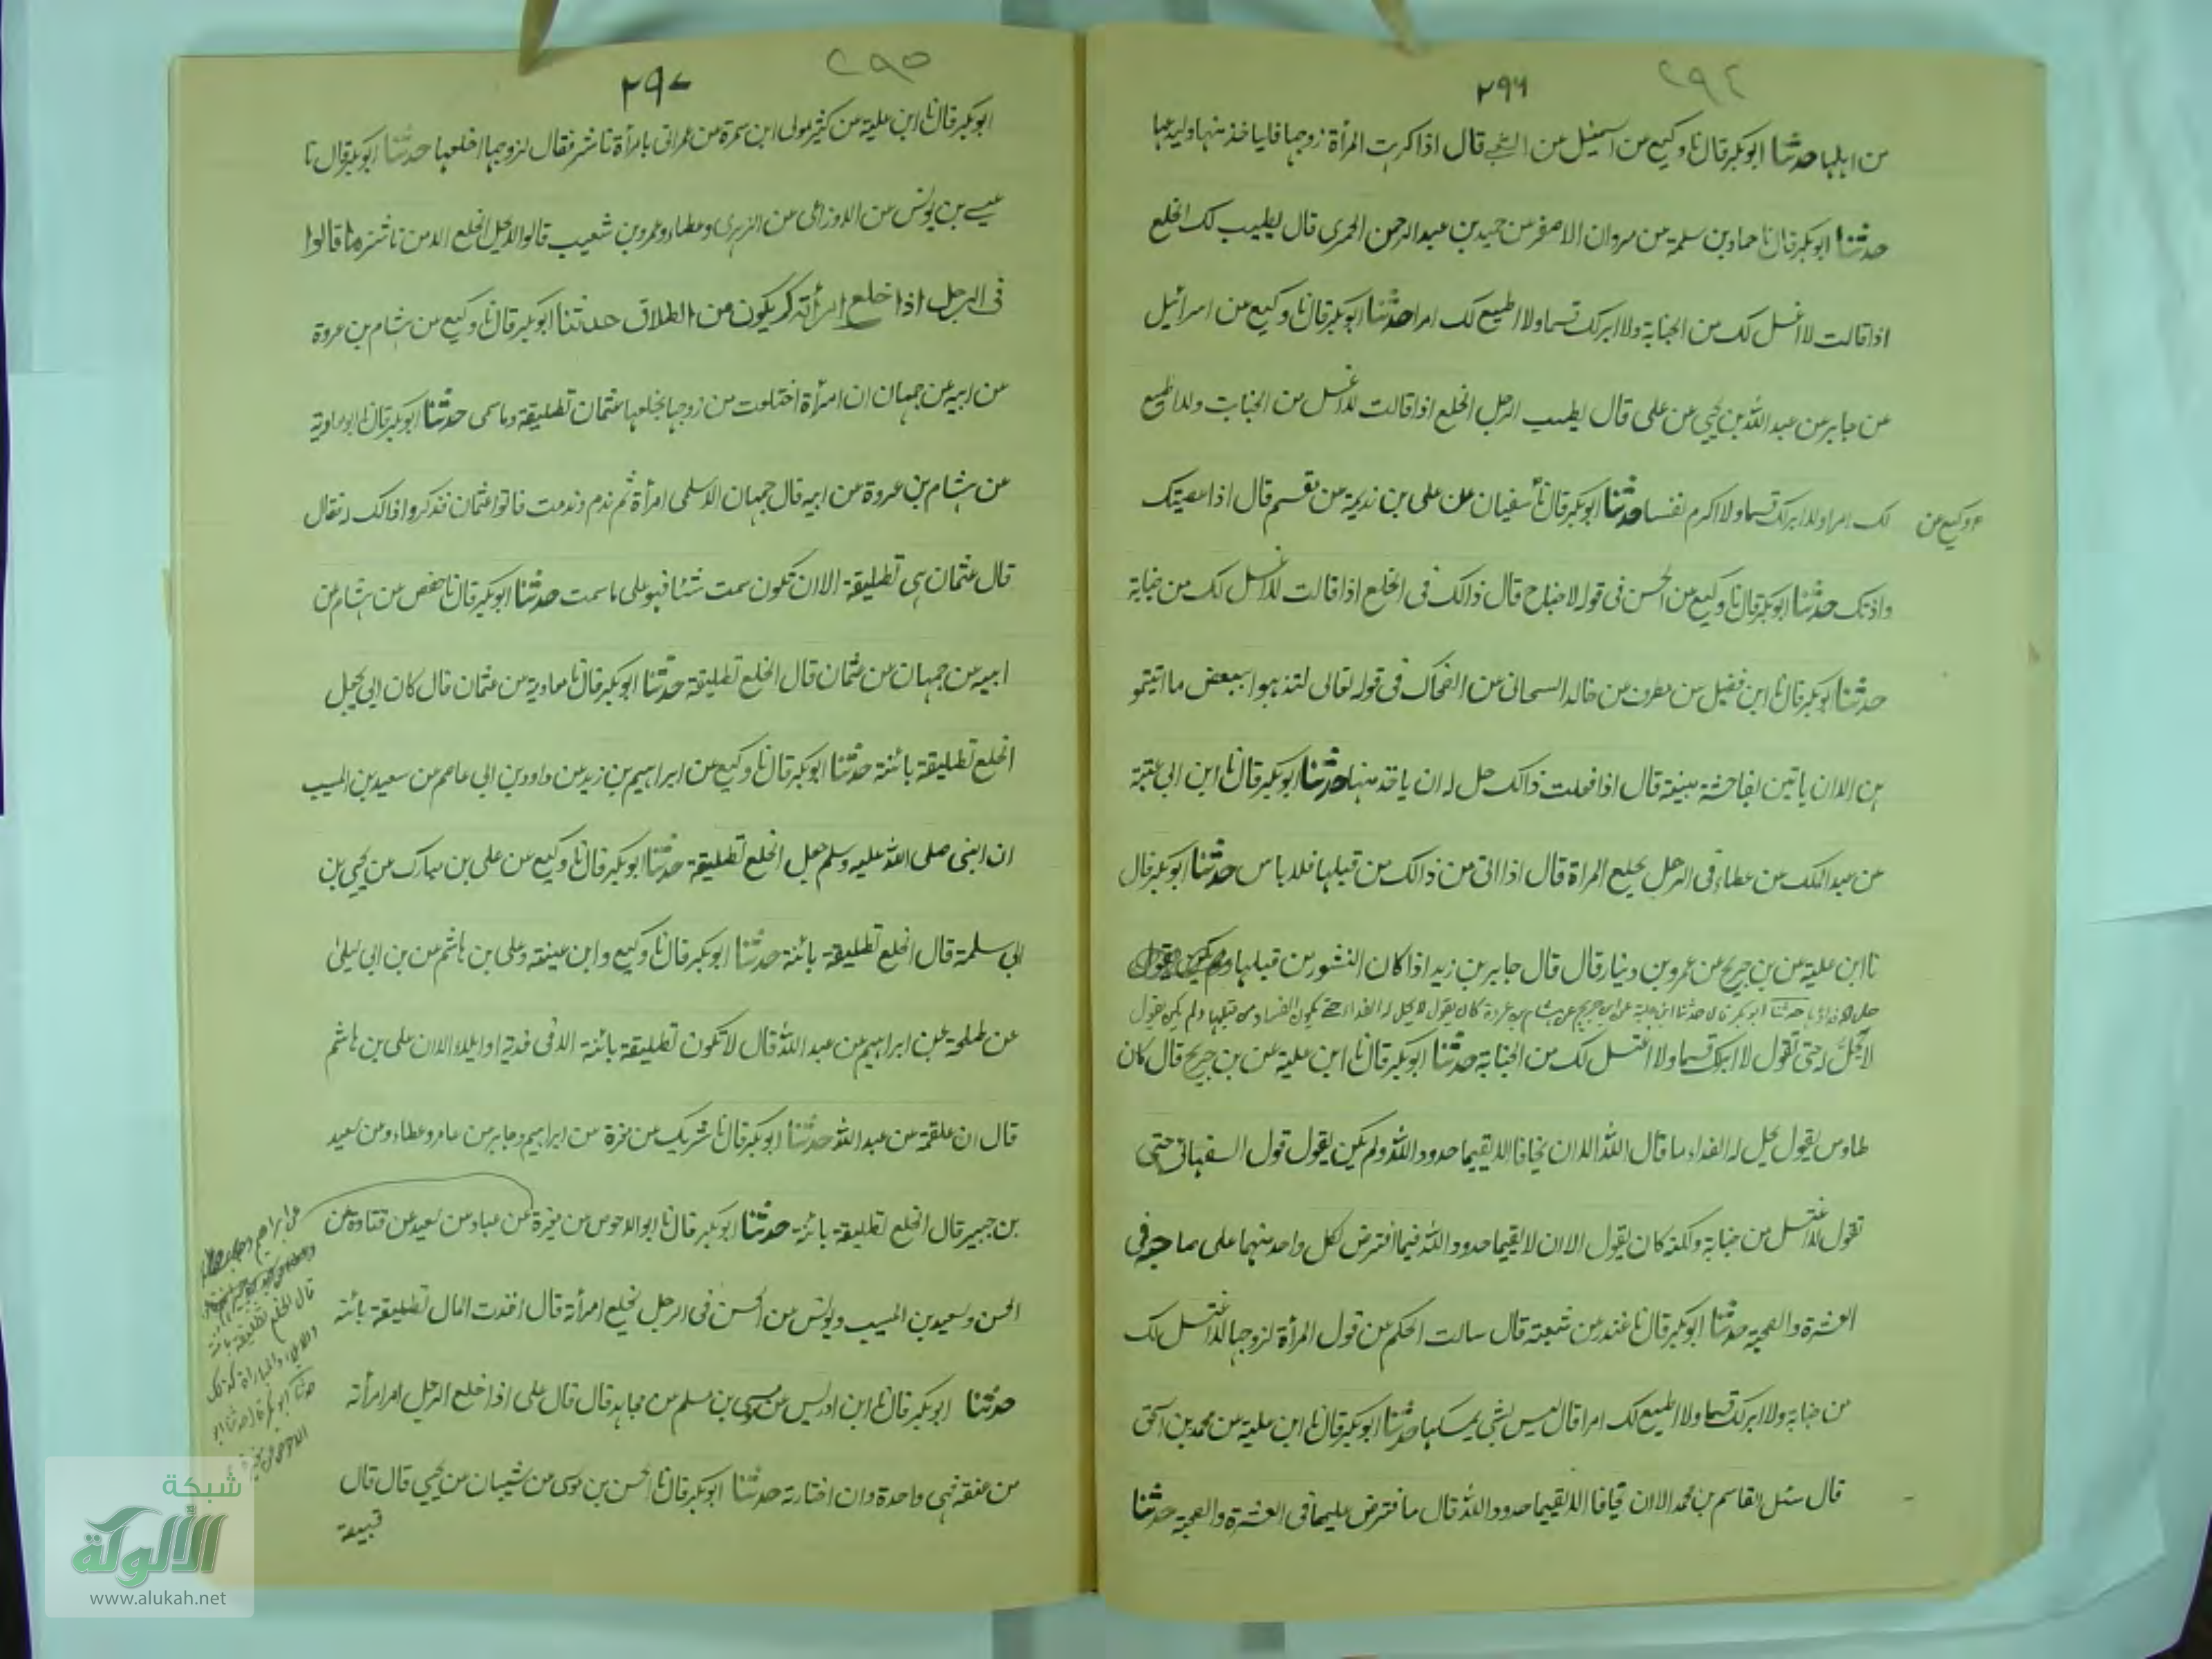 ٢٩٤
٢٩٦
من اهلها حدثنا ابوبكر قال نا وكيع من اسمعيل من الشعبي قال اذا كرهت المرأة زوجها فلياخذ منها وليدعها
حدثنا ابوبكر قال نا حماد بن سلمة من مروان الاصفر من حميد بن عبد الرحمن الحمرى قال يطيب لك الخلع
اذا قالت لا اغتسل لك من الجنابة ولا ابر لك قسما ولا اطيع لك امرا حدثنا ابوبكر قال نا وكيع من اسرائيل
من جابر من عبد الله بن يحيي من على قال يطيب الرجل الخلع اذا قالت لا اغتسل من الجنابت ولا اطيع
لك امرا ولا ابر لك قسما ولا اكرم نفسا حدثنا ابوبكر قال نا سفيان من على بن نديمة من مقسم قال اذا عصيتك
وكيع من
واذتك حدثنا ابوبكر قال نا وكيع من الحسن فى قوله لا جناح قال ذالك فى الخلع اذا قالت لا اغتسل لك من جنابة
حدثنا ابوبكر قال نا ابن فضيل من مطرف من خالد السحانى من الضحاك فى قوله تعالى لتذهبوا ببعض ما اتيتمو
هن الا ان ياتين بفاحشة مبينة قال اذا فعلت ذالك حل له ان ياخذ منها حدثنا ابوبكر قال نا ابن ابى عتبة
من عبد الملك من عطاء فى الرجل يخلع المراة قال اذا اتى من ذالك من قبلها فلا باس حدثنا ابوبكر قال
نا ابن علية من بن جريج عن عمرو بن دينار قال قال جابر بن زيد اذا كان النشور من قبلها
حل له فداؤها حدثنا ابوبكر قال حدثنا ابن علية عن ابن جريج عن هشام بن عروة كان يقول لا يحل له الفداء حتى يكون الفساد من قبلها ولم يكن يقول
لا يحل له حتى تقول لا ابر لك قسما ولا اغتسل لك من الجنابة حدثنا ابوبكر قال نا ابن علية من بن جريج قال كان
طاوس يقول يحل له الفداء ما قال الله الا ان يخافا الا يقيما حدود الله ولم يكن يقول قول السفهائى حتى
تقول لا اغتسل من جنابة ولكنه كان يقول الا ان لا يقيما حدود الله فيما افترض لكل واحد منهما على صاحبه فى
العشرة والصحبة حدثنا ابوبكر قال نا غندر من شعبة قال سالت الحكم من قول المرأة لزوجها لا اغتسل لك
من جنابة ولا ابر لك قسما ولا اطيع لك امرا قال ليس بشى يمسكها حدثنا ابوبكر قال نا ابن علية من محمد بن اسحق
قال سئل القاسم بن محمد الا ان يخافا الا يقيما حدود الله قال ما فترض عليهما فى العشرة والصحبة حدثنا
٢٩٥
٢٩٧
ابوبكر قال نا ابن علية من كثير مولى ابن سمرة من عمر اتى بامرأة ناشز فقال لزوجها اخلعها حدثنا ابوبكر قال نا
عيسے بن يونس من الاوزاعى من الزهرى وعطاء وعمرو بن شعيب قالوا لا يحل الخلع الا من ناشز ما قالوا
فى الرجل اذا خلع امرأته كم يكون من الطلاق حدثنا ابوبكر قال نا وكيع من هشام بن عروة
من ابيه عن جمهان ان امرأة اختلعت من زوجها فجعلها عثمان تطليقة وما سمى حدثنا ابوبكر قال نا ابو معاوية
من هشام بن عروة من ابيه قال جمهان الاسلمى امرأة ثم ندم وندمت فاتوا عثمان فذكروا ذالك له فقال
قال عثمان هى تطليقة الا ان تكون سمت شئا فهو على ما سمت حدثنا ابوبكر قال نا حفص من هشام من
ابيه من جمهان من عثمان قال الخلع تطليقة حدثنا ابوبكر قال نا معاوية من عثمان قال كان ابى يجعل
الخلع تطليقة بائنة حدثنا ابوبكر قال نا وكيع من ابراهيم بن زيد من داود بن ابى عاصم من سعيد بن المسيب
ان النبى صلى الله عليه وسلم جعل الخلع تطليقة حدثنا ابوبكر قال نا وكيع من على بن مبارك من يحيى بن
ابى سلمة قال الخلع تطليقة بائنة حدثنا ابوبكر قال نا وكيع وابن عينة وعلى بن هاشم من بن ابى ليلىٰ
عن طلحة عن ابراهيم من عبد الله قال لا تكون تطليقة بائنة الا فى فدية او ايلاء الا ان على بن هاشم
قال ان علقمة من عبد الله حدثنا ابوبكر قال نا شريك من مغيرة من ابراهيم وجابر من عامر وعطاء ومن سعيد
بن جبير قال الخلع تطليقة بائنة حدثنا ابوبكر قال نا ابو الاحوص من مغيرة من عباد من سعيد عن قتادة من
عن ابراهيم
قال الخلع تطليقة بائنة
والايلاء والمباراة كذلك
حدثنا ابوبكر قال حدثنا ابو
الاحوص عن مغيرة
الحسن وسعيد بن المسيب ويونس من الحسن فى الرجل يخلع امرأته قال اخذت المال تطليقة بائنة
حدثنا ابوبكر قال نا ابن ادريس من موسى بن مسلم من مجاهد قال قال على اذا خلع الرجل امر امرأته
من عنقه فهى واحدة وان اختارته حدثنا ابوبكر قال نا الحسن بن موسى من شيبان من يحيي قال قال
قبيصة
شبكة
الألوكة
www.alukah.net